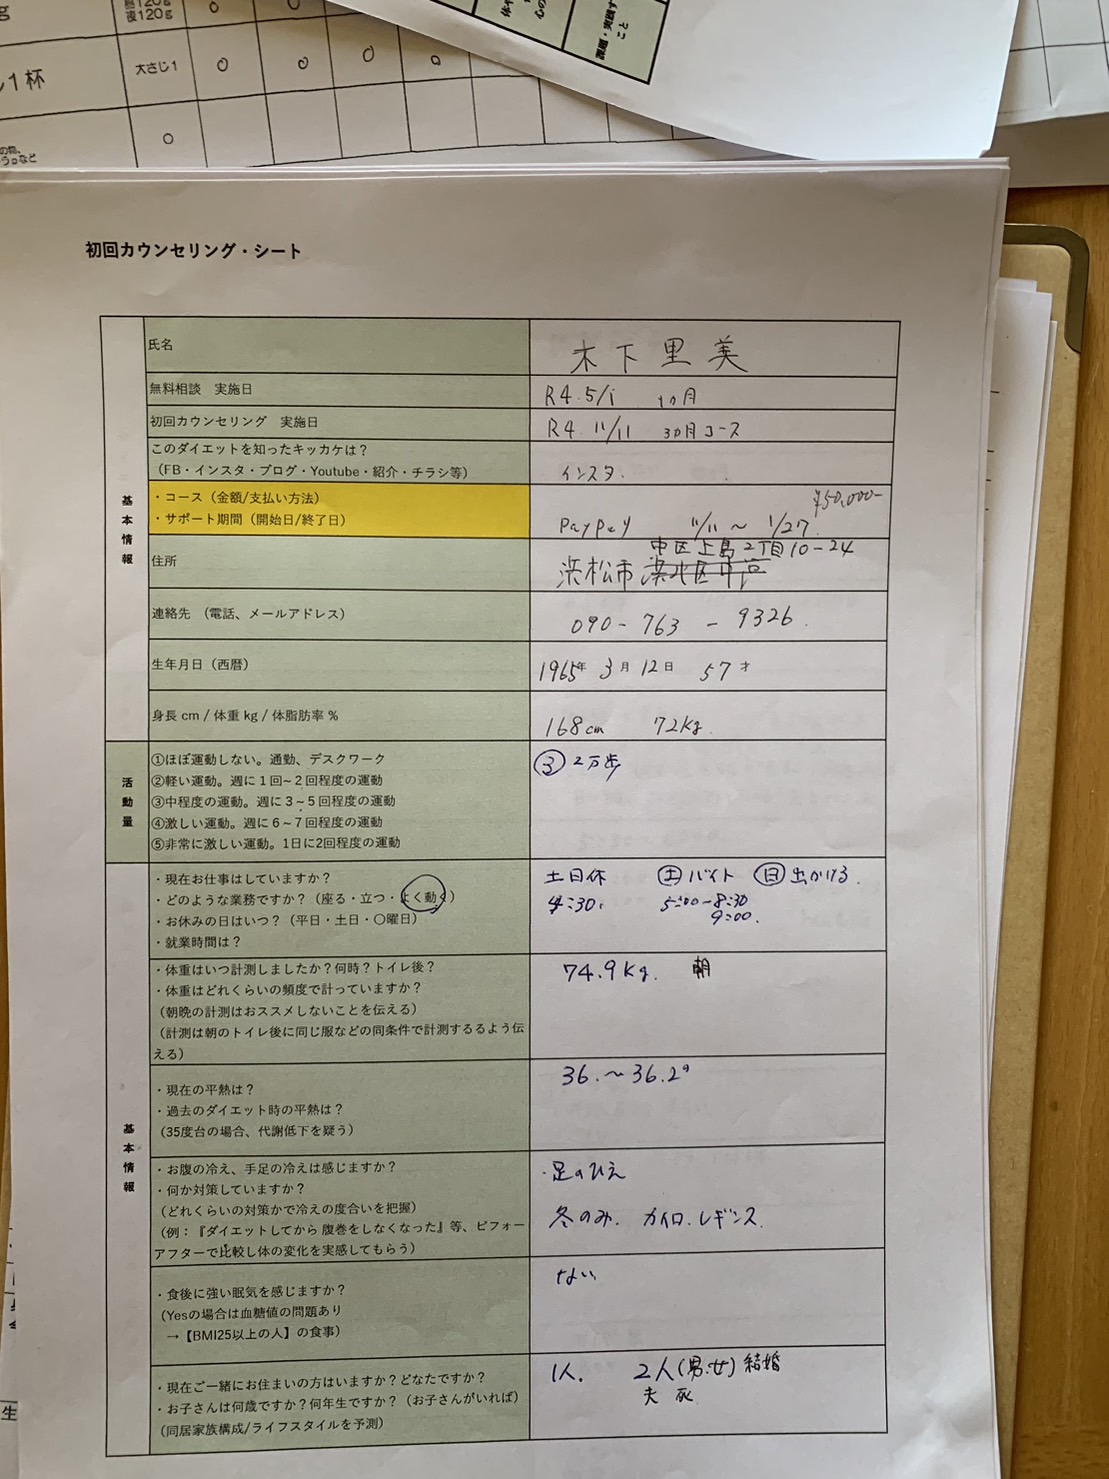 後120g
大さじ1
1杯
課題・実践す
こと
初回カウンセリング・シート
基本情報
氏名
木下里美
無料相談 実施日
R4.5/1 1ヵ月
初回カウンセリング 実施日
R4 11/11 3ヵ月コース
このダイエットを知ったキッカケは？
（FB・インスタ・ブログ・Youtube・紹介・チラシ等）
インスタ.
・コース（金額/支払い方法）
・サポート期間（開始日/終了日）
¥50,000-
PayPay 11/11～1/27.
住所
中区上島2丁目10-24
浜松市
連絡先 （電話、メールアドレス）
090- 763 - 9326.
生年月日（西暦）
1965年 3月 12日 57才
身長 cm / 体重 kg / 体脂肪率 %
168cm 72kg.
活動量
①ほぼ運動しない。通勤、デスクワーク
②軽い運動。週に1回~2回程度の運動
③中程度の運動。週に3~5回程度の運動
④激しい運動。週に6~7回程度の運動
⑤非常に激しい運動。1日に2回程度の運動
③ 2万歩
基本情報
・現在お仕事はしていますか？
・どのような業務ですか？（座る・立つ・よく動く）
・お休みの日はいつ？（平日・土日・〇曜日）
・就業時間は？
土日休 土バイト 日出かける.
4:30. 5:00-8:30
9:00.
・体重はいつ計測しましたか？何時？トイレ後？
・体重はどれくらいの頻度で計っていますか？
（朝晩の計測はおススメしないことを伝える）
（計測は朝のトイレ後に同じ服などの同条件で計測するるよう伝
える）
74.9kg. 朝
・現在の平熱は？
・過去のダイエット時の平熱は？
（35度台の場合、代謝低下を疑う）
36.～36.2°
・お腹の冷え、手足の冷えは感じますか？
・何か対策していますか？
（どれくらいの対策かで冷えの度合いを把握）
（例：『ダイエットしてから腹巻をしなくなった』等、ビフォー
アフターで比較し体の変化を実感してもらう）
・足のひえ
冬のみ. カイロ.レギンス.
・食後に強い眠気を感じますか？
（Yesの場合は血糖値の問題あり
→【BMI25以上の人】の食事）
ない
・現在ご一緒にお住まいの方はいますか？どなたですか？
・お子さんは何歳ですか？何年生ですか？（お子さんがいれば）
（同居家族構成/ライフスタイルを予測）
1人. 2人(男.女)結婚
夫 死